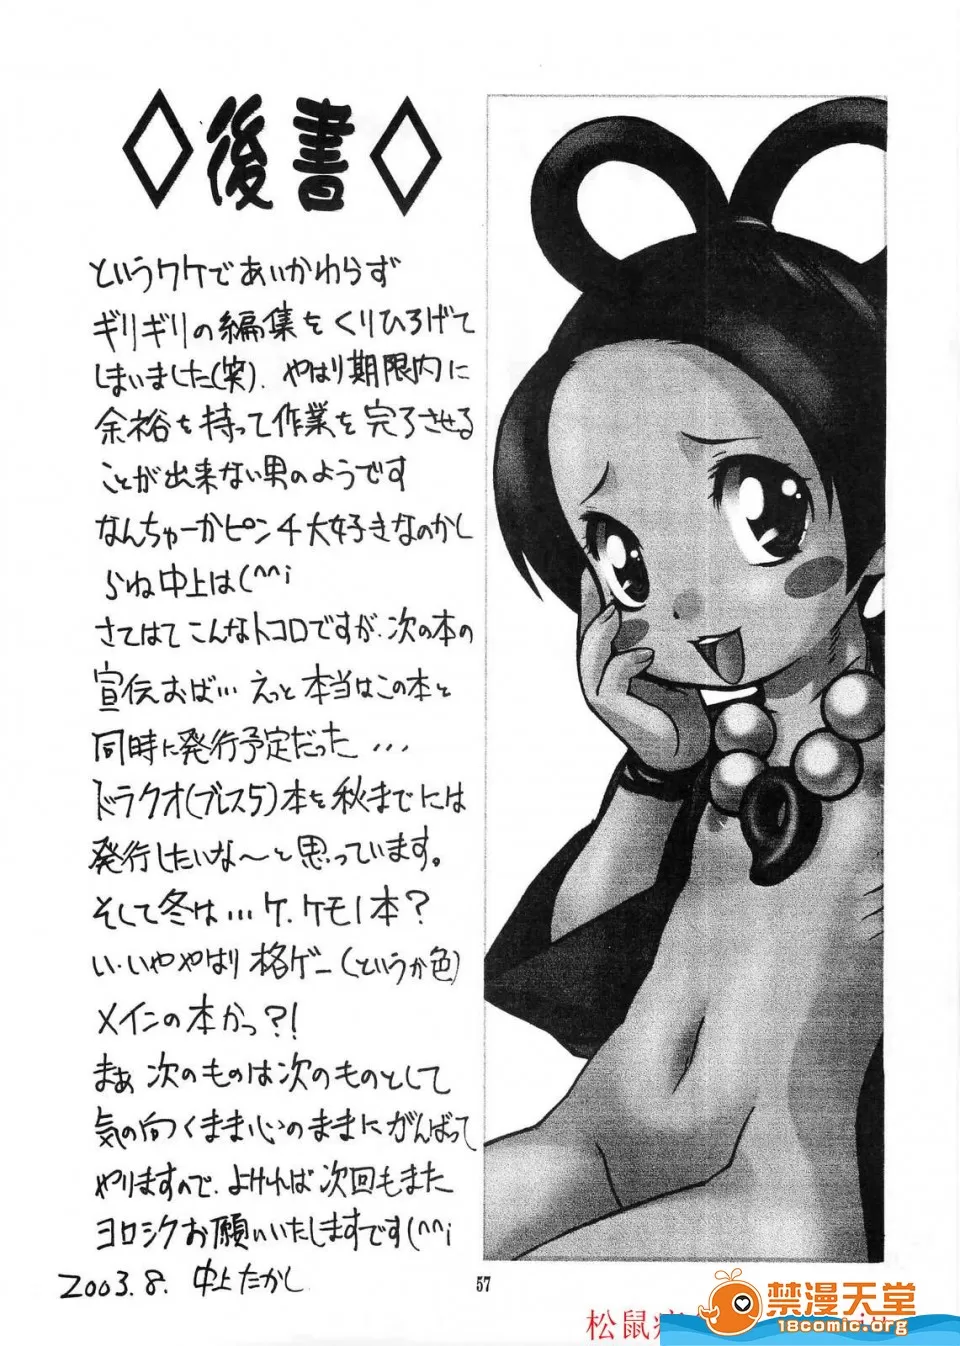 ◇後書◇
というワケであいかわらず
ギリギリの編集をくりひろげて
しまいました(笑)、やはり期限内に
余裕を持って作業を完了させる
ことが出来ない男のようです
なんちゅーかピンチ大好きなのかし
らね中上は(^^;
さてはてこんなトコロですが、次の本の
宣伝おば… えっと本当はこの本と
同時に発行予定だった …
ドラクオ(ブレス5)本を秋までには
発行したいな〜と思っています。
そして冬は…ケ、ケモノ本?
い、いややはり格ゲー(というか色)
メインの本かっ?!
まぁ次のものは次のものとして
気の向くまま心のままにがんばって
やりますので、よければ次回もまた
ヨロシクお願いいたしますです(^^;
2003.8. 中上たかし
57
松鼠
禁漫天堂
18comic.org